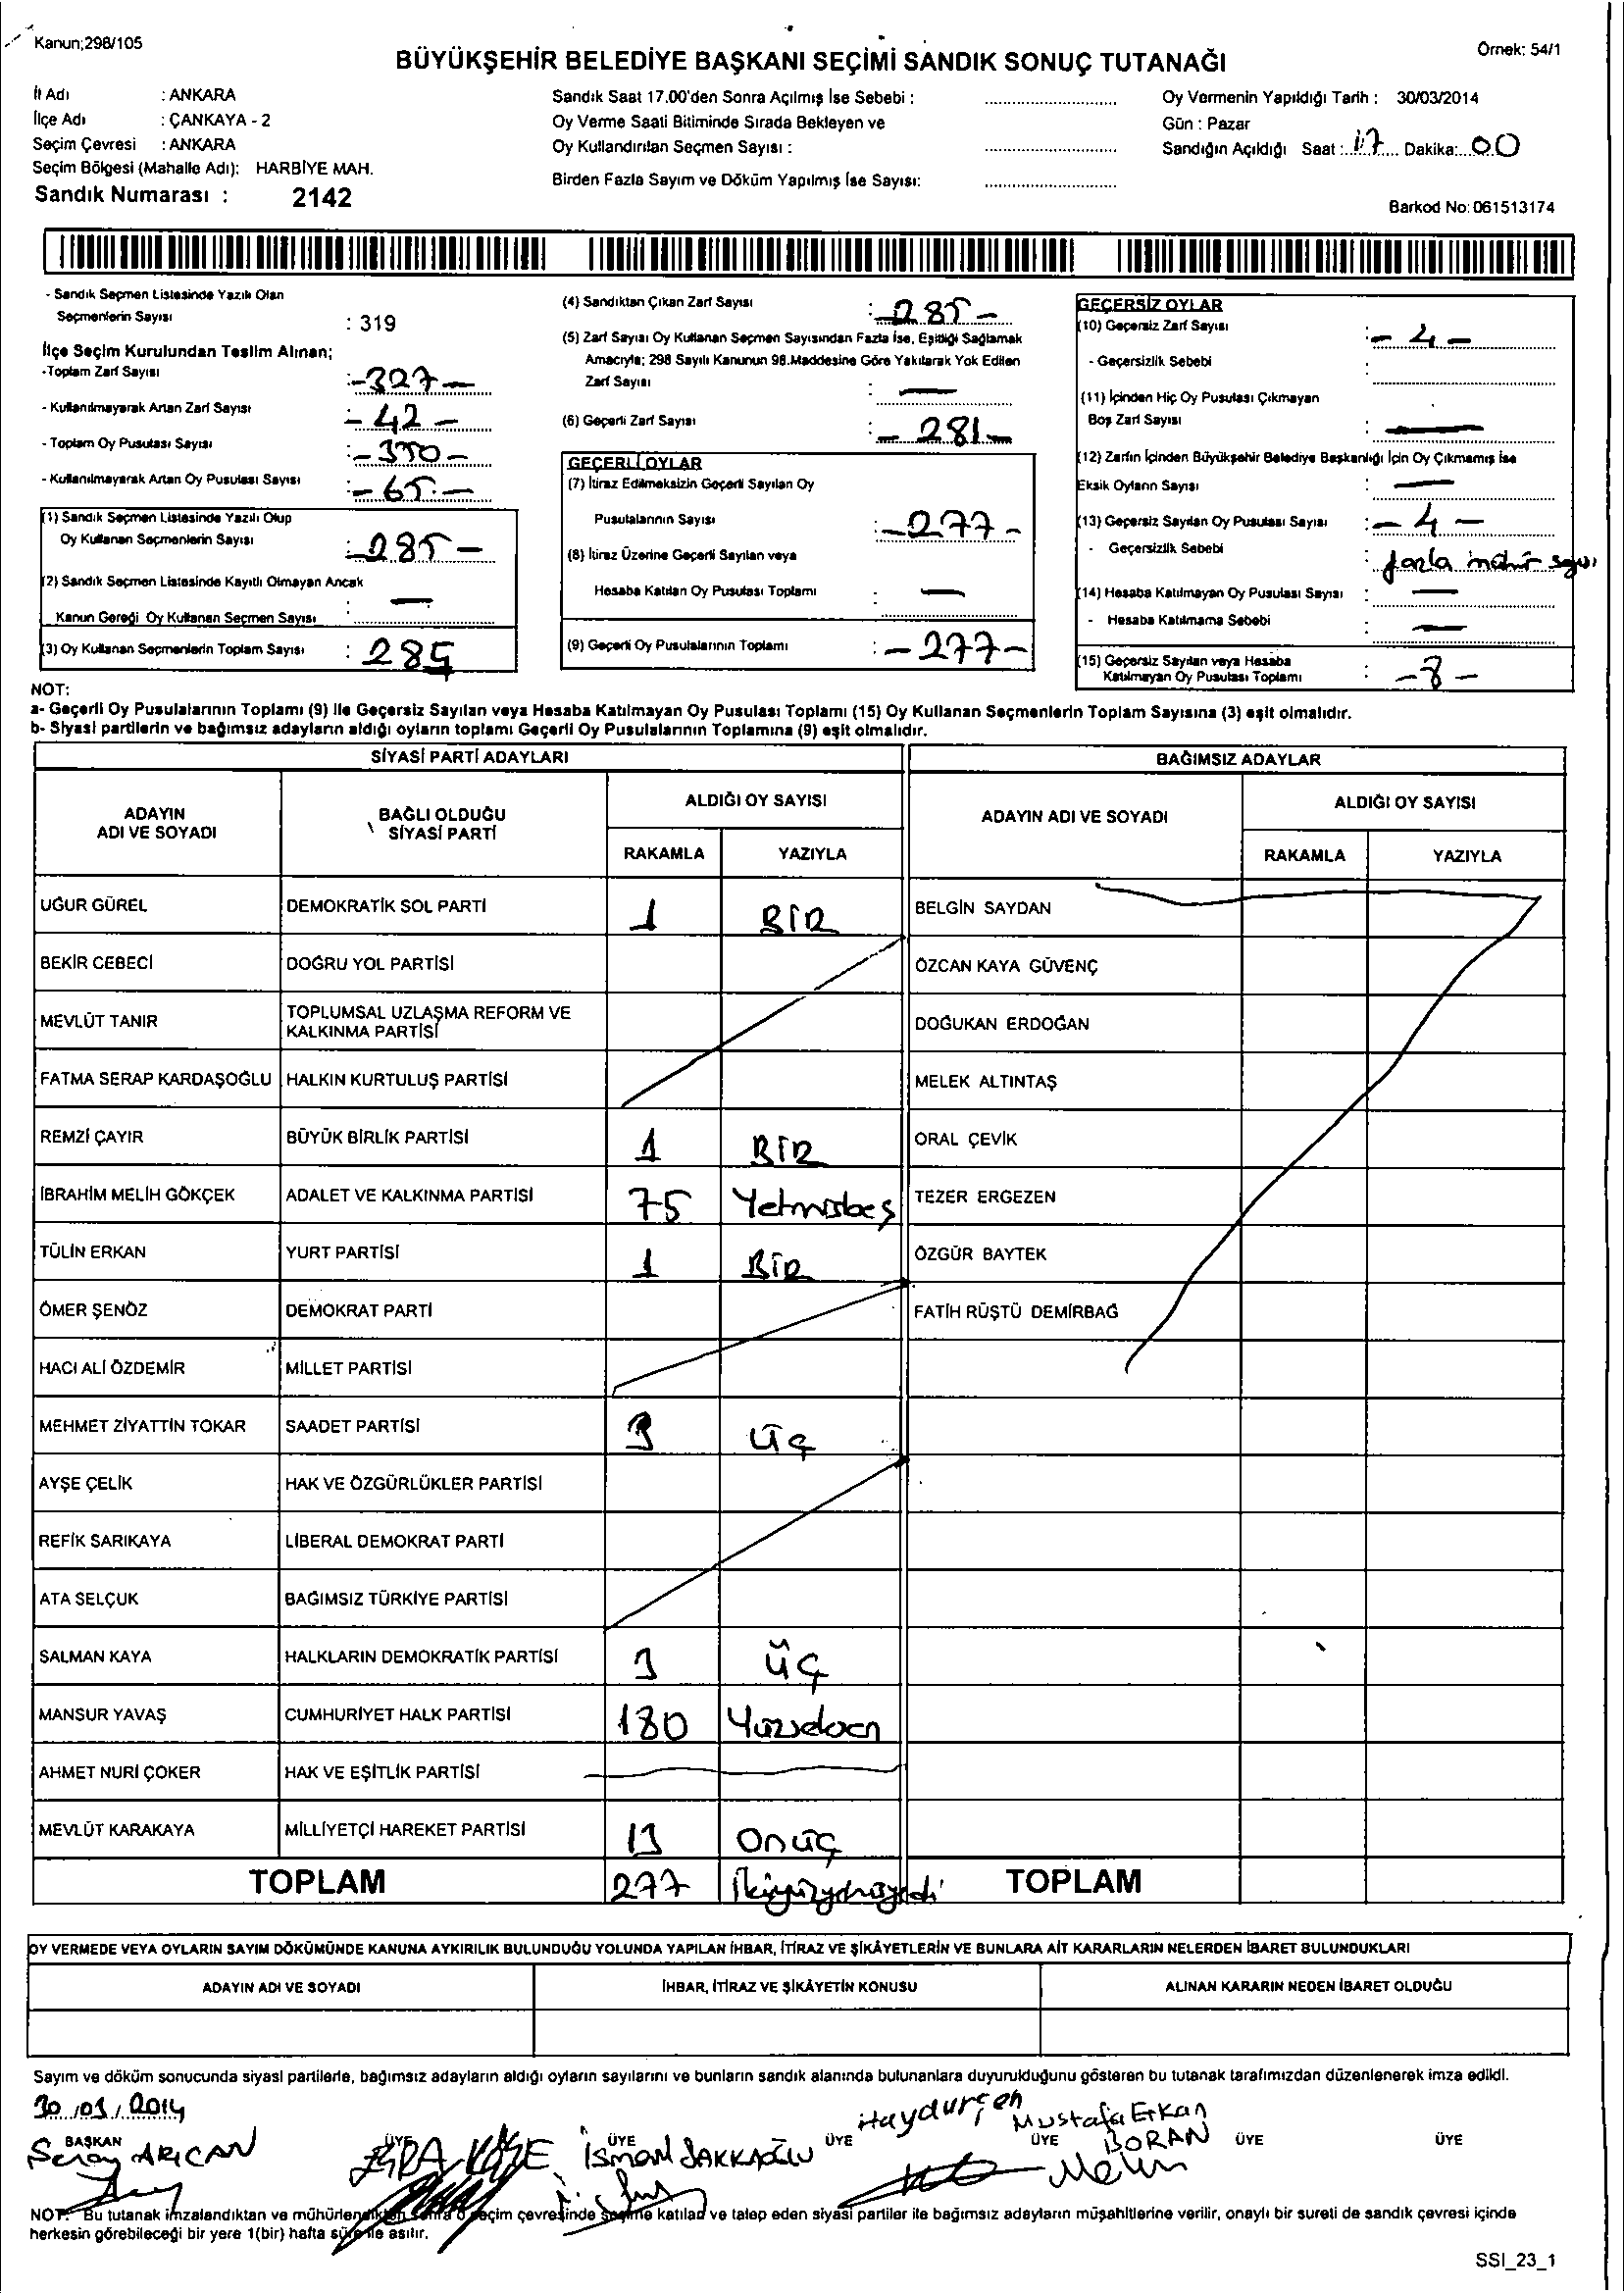 Kanun;298/105
Örnek: 54/1
BÜYÜKŞEHİR BELEDİYE BAŞKANI SEÇİMİ SANDIK SONUÇ TUTANAĞI
İl Adı : ANKARA
İlçe Adı : ÇANKAYA - 2
Seçim Çevresi : ANKARA
Seçim Bölgesi (Mahalle Adı): HARBİYE MAH.
Sandık Numarası : 2142
Sandık Saat 17.00'den Sonra Açılmış İse Sebebi :
Oy Verme Saati Bitiminde Sırada Bekleyen ve
Oy Kullandırılan Seçmen Sayısı :
Birden Fazla Sayım ve Döküm Yapılmış İse Sayısı:
Oy Vermenin Yapıldığı Tarih : 30/03/2014
Gün : Pazar
Sandığın Açıldığı Saat : 17 Dakika: 00
Barkod No: 061513174
- Sandık Seçmen Listesinde Yazılı Olan
Seçmenlerin Sayısı : 319
İlçe Seçim Kurulundan Teslim Alınan;
-Toplam Zarf Sayısı : -327-
- Kullanılmayarak Artan Zarf Sayısı : -42-
- Toplam Oy Pusulası Sayısı : -350-
- Kullanılmayarak Artan Oy Pusulası Sayısı : -65-
(1) Sandık Seçmen Listesinde Yazılı Olup
Oy Kullanan Seçmenlerin Sayısı : -285-
(2) Sandık Seçmen Listesinde Kayıtlı Olmayan Ancak
Kanun Gereği Oy Kullanan Seçmen Sayısı : —
(3) Oy Kullanan Seçmenlerin Toplam Sayısı : 285
(4) Sandıktan Çıkan Zarf Sayısı : -285-
(5) Zarf Sayısı Oy Kullanan Seçmen Sayısından Fazla İse, Eşitliği Sağlamak
Amacıyla; 298 Sayılı Kanunun 98.Maddesine Göre Yakılarak Yok Edilen
Zarf Sayısı : —
(6) Geçerli Zarf Sayısı : -281-
GEÇERLİ OYLAR
(7) İtiraz Edilmeksizin Geçerli Sayılan Oy
Pusulalarının Sayısı : -277-
(8) İtiraz Üzerine Geçerli Sayılan veya
Hesaba Katılan Oy Pusulası Toplamı : —
(9) Geçerli Oy Pusulalarının Toplamı : -277-
GEÇERSİZ OYLAR
(10) Geçersiz Zarf Sayısı : -4-
- Geçersizlik Sebebi :
(11) İçinden Hiç Oy Pusulası Çıkmayan
Boş Zarf Sayısı : —
(12) Zarfın İçinden Büyükşehir Belediye Başkanlığı İçin Oy Çıkmamış İse
Eksik Oyların Sayısı : —
(13) Geçersiz Sayılan Oy Pusulası Sayısı : -4-
- Geçersizlik Sebebi : fazla mühür sayısı
(14) Hesaba Katılmayan Oy Pusulası Sayısı : —
- Hesaba Katılmama Sebebi : —
(15) Geçersiz Sayılan veya Hesaba
Katılmayan Oy Pusulası Toplamı : -8-
NOT:
a- Geçerli Oy Pusulalarının Toplamı (9) ile Geçersiz Sayılan veya Hesaba Katılmayan Oy Pusulası Toplamı (15) Oy Kullanan Seçmenlerin Toplam Sayısına (3) eşit olmalıdır.
b- Siyasi partilerin ve bağımsız adayların aldığı oyların toplamı Geçerli Oy Pusulalarının Toplamına (9) eşit olmalıdır.
SİYASİ PARTİ ADAYLARI
BAĞIMSIZ ADAYLAR
ADAYIN
ADI VE SOYADI
BAĞLI OLDUĞU
SİYASİ PARTİ
ALDIĞI OY SAYISI
RAKAMLA YAZIYLA
ADAYIN ADI VE SOYADI
ALDIĞI OY SAYISI
RAKAMLA YAZIYLA
UĞUR GÜREL DEMOKRATİK SOL PARTİ 1 BİR BELGİN SAYDAN
BEKİR CEBECİ DOĞRU YOL PARTİSİ ÖZCAN KAYA GÜVENÇ
MEVLÜT TANIR TOPLUMSAL UZLAŞMA REFORM VE
KALKINMA PARTİSİ DOĞUKAN ERDOĞAN
FATMA SERAP KARDAŞOĞLU HALKIN KURTULUŞ PARTİSİ MELEK ALTINTAŞ
REMZİ ÇAYIR BÜYÜK BİRLİK PARTİSİ 1 BİR ORAL ÇEVİK
İBRAHİM MELİH GÖKÇEK ADALET VE KALKINMA PARTİSİ 75 Yetmişbeş TEZER ERGEZEN
TÜLİN ERKAN YURT PARTİSİ 1 BİR ÖZGÜR BAYTEK
ÖMER ŞENÖZ DEMOKRAT PARTİ FATİH RÜŞTÜ DEMİRBAĞ
HACI ALİ ÖZDEMİR MİLLET PARTİSİ
MEHMET ZİYATTİN TOKAR SAADET PARTİSİ 3 Üç
AYŞE ÇELİK HAK VE ÖZGÜRLÜKLER PARTİSİ
REFİK SARIKAYA LİBERAL DEMOKRAT PARTİ
ATA SELÇUK BAĞIMSIZ TÜRKİYE PARTİSİ
SALMAN KAYA HALKLARIN DEMOKRATİK PARTİSİ 3 üç
MANSUR YAVAŞ CUMHURİYET HALK PARTİSİ 180 Yüzseksen
AHMET NURİ ÇOKER HAK VE EŞİTLİK PARTİSİ
MEVLÜT KARAKAYA MİLLİYETÇİ HAREKET PARTİSİ 13 Onüç
TOPLAM 277 İkiyüzyetmişyedi TOPLAM
OY VERMEDE VEYA OYLARIN SAYIM DÖKÜMÜNDE KANUNA AYKIRILIK BULUNDUĞU YOLUNDA YAPILAN İHBAR, İTİRAZ VE ŞİKÂYETLERİN VE BUNLARA AİT KARARLARIN NELERDEN İBARET BULUNDUKLARI
ADAYIN ADI VE SOYADI İHBAR, İTİRAZ VE ŞİKÂYETİN KONUSU ALINAN KARARIN NEDEN İBARET OLDUĞU
Sayım ve döküm sonucunda siyasi partilerle, bağımsız adayların aldığı oyların sayılarını ve bunların sandık alanında bulunanlara duyurulduğunu gösteren bu tutanak tarafımızdan düzenlenerek imza edildi.
30/03/2014
BAŞKAN ÜYE ÜYE ÜYE ÜYE ÜYE ÜYE
ARICAN
Mustafa Erkan
BORAN
NOT: Bu tutanak imzalandıktan ve mühürlendikten sonra o seçim çevresinde seçime katılan ve talep eden siyasi partiler ile bağımsız adayların müşahitlerine verilir, onaylı bir sureti de sandık çevresi içinde
herkesin görebileceği bir yere 1(bir) hafta süre ile asılır.
SSI_23_1